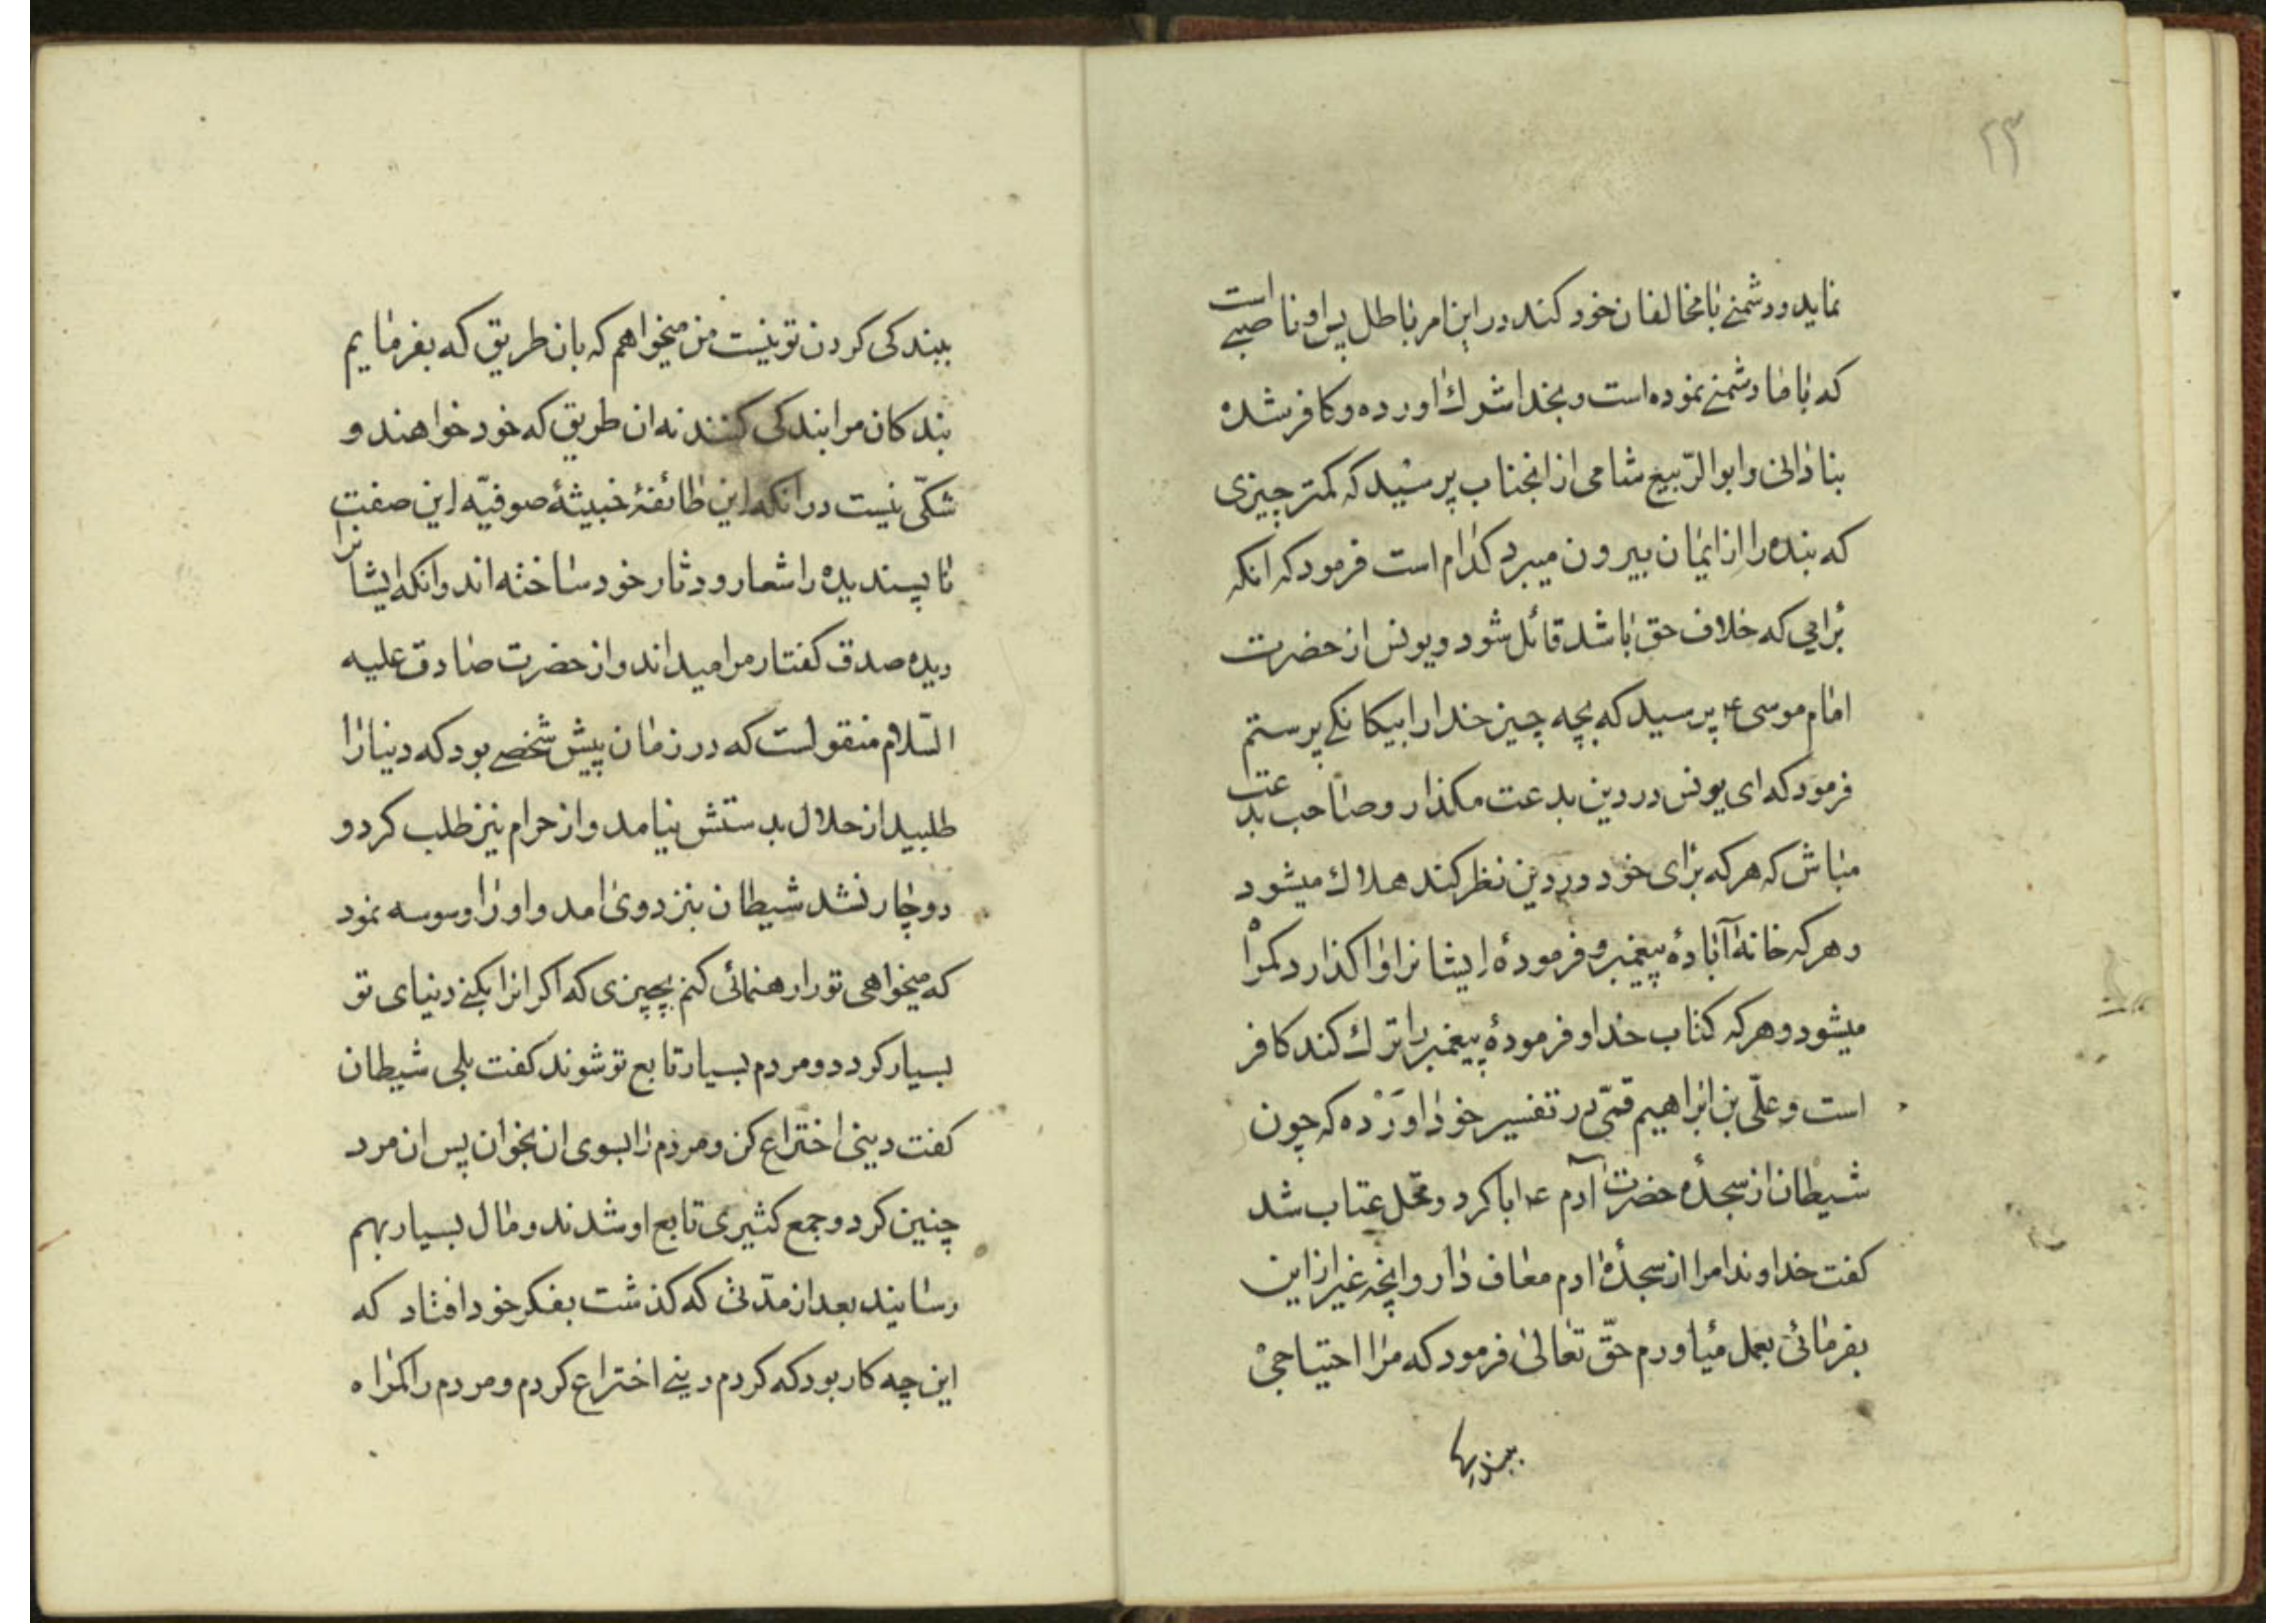 ۲۳
نماید و دشمنے با مخالفان خود کند در این امر باطل پس او ناصبے است
که با ما دشمنے نموده است و بخدا شرك اورده و کافر شده
بنادانی و ابو الرّبیع شامی از انجناب پرسید که کمتر چیزی
که بنده را از ایمان بیرون میبرد کدام است فرمود که انکه
برایی که خلاف حق باشد قائل شود و یونس از حضرت
امام موسی ع پرسید که بچه چیز خدا را بیکانکے پرستم
فرمود که ای یونس در دین بدعت مکذار و صاحب بدعت
مباش که هر که برای خود در دین نظر کند هلاك میشود
و هر که خانه آبادهٔ پیغمبر و فرمودهٔ ایشانرا واکذارد کمراه
میشود و هر که کتاب خدا و فرمودهٔ پیغمبر را ترك کند کافر
است و علّی بن ابراهیم قمّی در تفسیر خود اورده که چون
شیطان از سجدهٔ حضرت آدم ع ابا کرد و محّل عتاب شد
کفت خداوندا مرا از سجدهٔ ادم معاف دار و انچه غیر از این
بفرمائی بعمل میاورم حقّ تعالی فرمود که مرا احتیاجی
ببندکی کردن تو نیست من میخواهم که بان طریق که بفرمایم
بندکان مرا بندکی کنند نه ان طریق که خود خواهند و
شکّی نیست در انکه این طائفهٔ خبیثهٔ صوفیّه این صفت
ناپسندیده را شعار و دثار خود ساخته اند و انکه ایشانرا
دیده صدق کفتار مرا میداند و از حضرت صادق علیه
السّلام منقولست که در زمان پیش شخصے بود که دنیا را
طلبید از حلال بدستش نیامد و از حرام نیز طلب کرد و
دوچار نشد شیطان بنزد وی امد و او را وسوسه نمود
که میخواهی تو را رهنمائی کنم بچیزی که اکر انرا بکنے دنیای تو
بسیار کردد و مردم بسیار تابع تو شوند کفت بلی شیطان
کفت دینی اختراع کن و مردم را بسوی ان بخوان پس ان مرد
چنین کرد و جمع کثیری تابع او شدند و مال بسیار بهم
رسانید بعد از مدّتی که کذشت بفکر خود افتاد که
این چه کار بود که کردم دینے اختراع کردم و مردم را کمراه